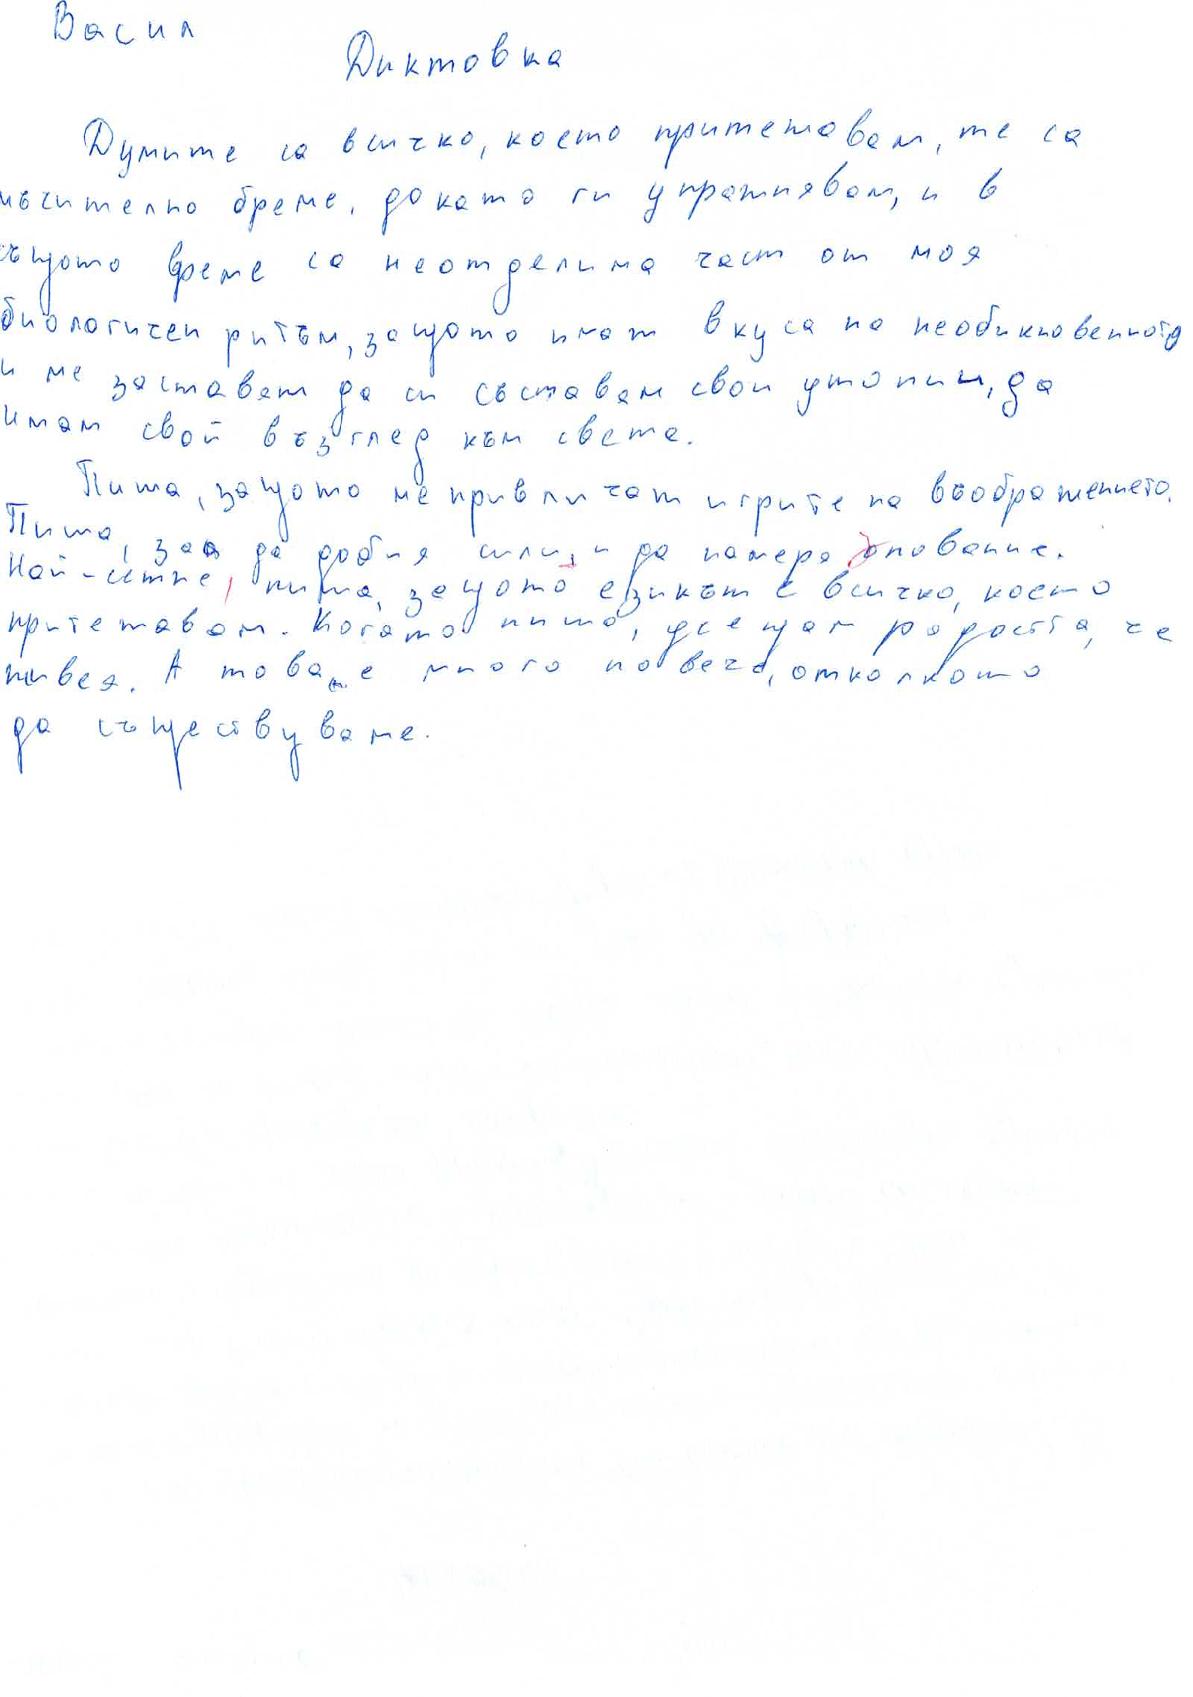 Васил
Диктовка
Думите са всичко, което притежавам, те са
мъчително бреме, докато ги упражнявам, и в
същото време са неотделима част от моя
биологичен ритъм, защото имат вкуса на необикновенното
и ме заставят да си съставям свои утопии, да
имам свой възглед към света.
Пиша, защото ме привличат игрите на въображението.
Пиша, за да добия сили, и да намеря опование.
Най-сетне, пиша, защото езикът е всичко, което
притежавам. Когато пиша, усещам радостта, че
живея. А това е много повече, отколкото
да съществуваме.